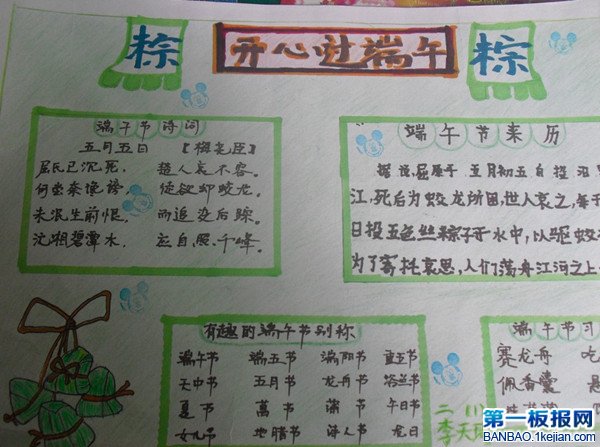 粽
开心过端午
粽
端午节诗词
五月五日 【梅尧臣】
屈氏已沉死, 楚人哀不容。
何尝奈谗谤, 徒欲却蛟龙。
未泯生前恨, 而追没后踪。
沅湘碧潭水, 应自照千峰。
端午节来历
据说屈原于五月初五自投汨
江,死后为蛟龙所困,世人哀之,每于
日投五色丝粽子于水中,以驱蛟
为了寄托哀思,人们荡舟江河之上
有趣的端午节别称
端午节 端五节 端阳节 重五节
天中节 五月节 龙舟节 浴兰节
夏节 菖节 蒲节 午日节
女儿节 地腊节 诗人节 龙日
端午节习
赛龙舟 吃
佩香囊 悬
二
李天
第一板报网
BANBAO.1kejian.com